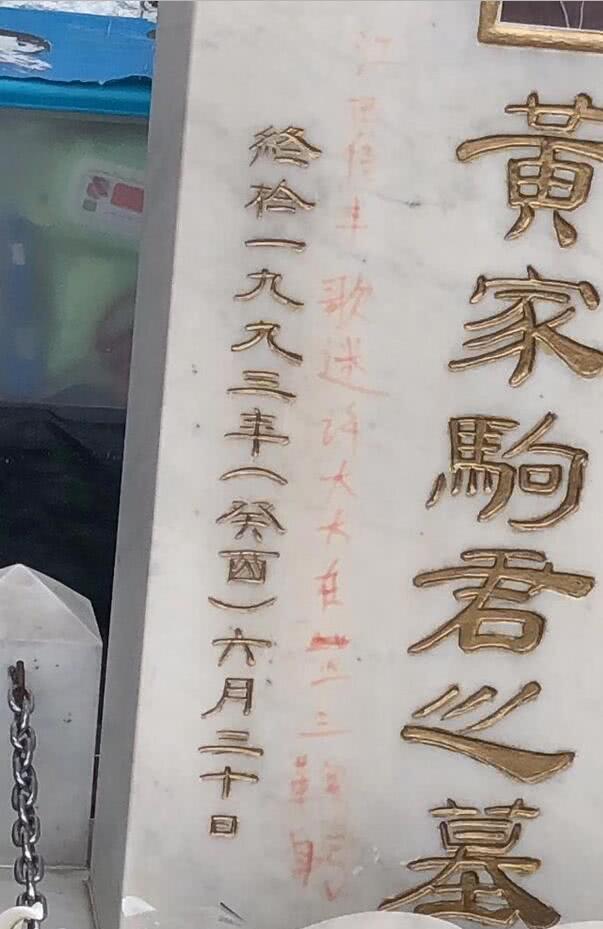 黃家駒君之墓
江西信丰歌迷许大大在三鞠躬
終於一九九三年(癸酉)六月三十日